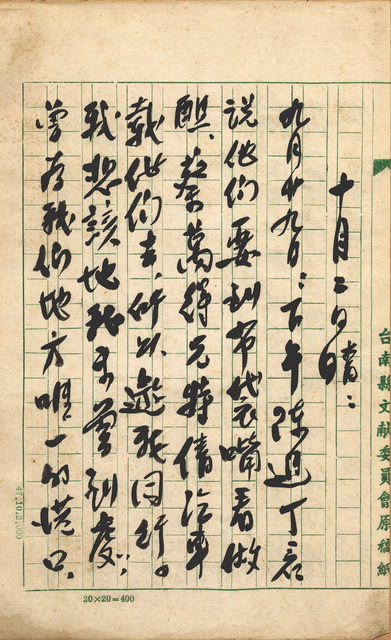 台南縣文獻委員會原稿紙
十月二日晴：
九月廿九日：下午陳進丁君
說他们要到布袋嘴看做
醮，蔡萬得兄特倩汽車
載他们去，所以邀我同行。
我想該地我未曾到處，
曾為我们地方唯一的港口，
20×20=400
47.10.2,000